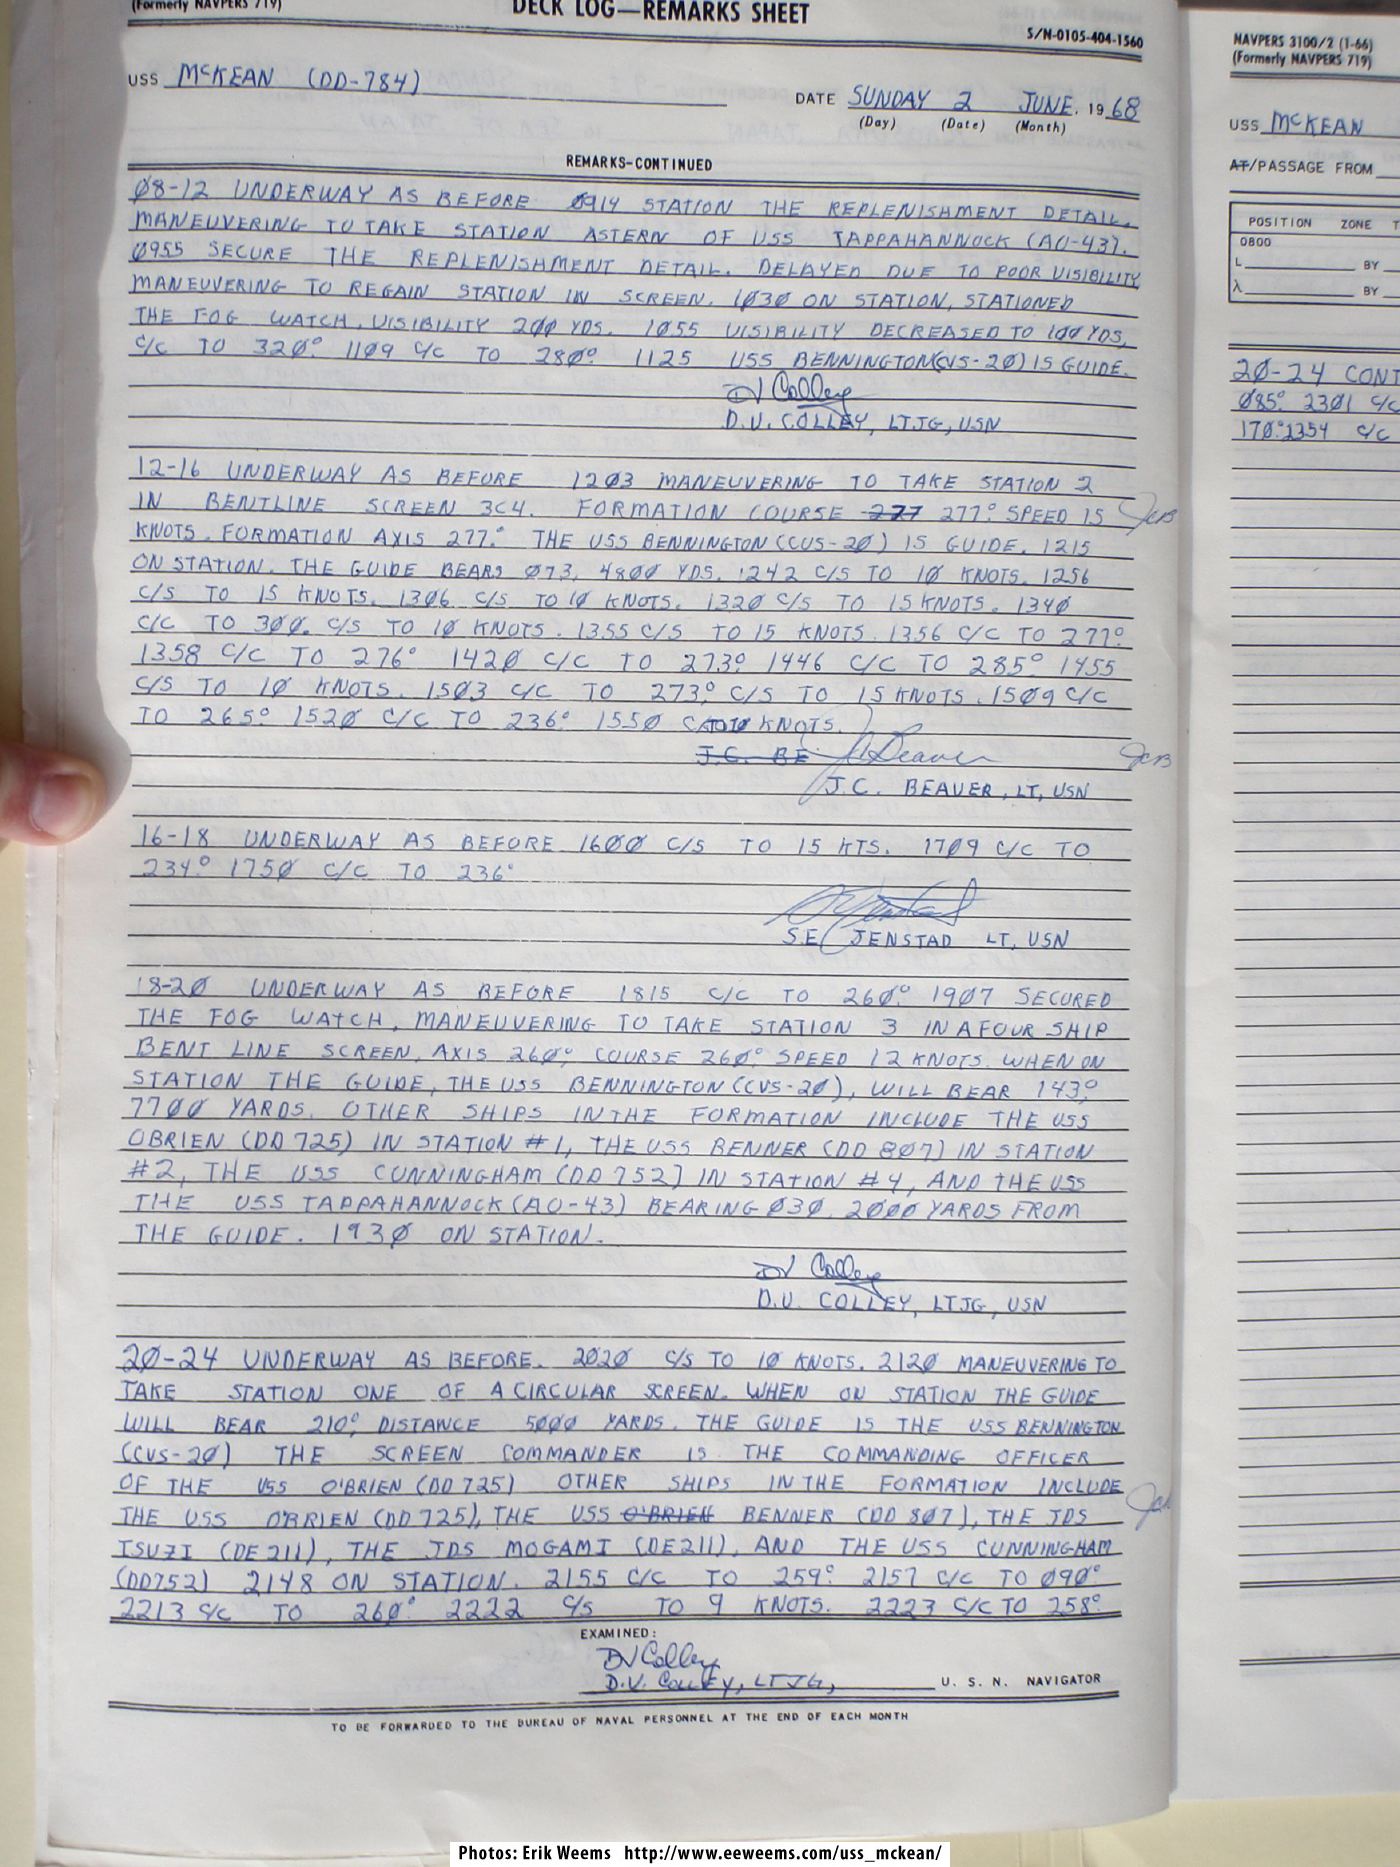 (Formerly NAVPERS 719)
DECK LOG—REMARKS SHEET
S/N-0105-404-1560
USS McKEAN (DD-784)
DATE SUNDAY 2 JUNE, 1968
(Day) (Date) (Month)
REMARKS-CONTINUED
Ø8-12 UNDERWAY AS BEFORE Ø914 STATION THE REPLENISHMENT DETAIL,
MANEUVERING TO TAKE STATION ASTERN OF USS TAPPAHANNOCK (AO-43).
Ø955 SECURE THE REPLENISHMENT DETAIL. DELAYED DUE TO POOR VISIBILITY
MANEUVERING TO REGAIN STATION IN SCREEN. 1Ø3Ø ON STATION, STATIONED
THE FOG WATCH, VISIBILITY 2ØØ YDS. 1Ø55 VISIBILITY DECREASED TO 1ØØ YDS,
C/C TO 32Ø° 11Ø9 C/C TO 28Ø° 1125 USS BENNINGTON (CVS-2Ø) IS GUIDE.
DV Colley
D.V. COLLEY, LTJG, USN
12-16 UNDERWAY AS BEFORE 12Ø3 MANEUVERING TO TAKE STATION 2
IN BENTLINE SCREEN 3C4. FORMATION COURSE 277 277° SPEED 15 JCB
KNOTS. FORMATION AXIS 277.° THE USS BENNINGTON (CVS-2Ø) IS GUIDE. 1215
ON STATION. THE GUIDE BEARS Ø73, 48ØØ YDS. 1242 C/S TO 1Ø KNOTS. 1256
C/S TO 15 KNOTS. 13Ø6 C/S TO 1Ø KNOTS. 132Ø C/S TO 15 KNOTS. 134Ø
C/C TO 3ØØ. C/S TO 1Ø KNOTS. 1355 C/S TO 15 KNOTS. 1356 C/C TO 277°
1358 C/C TO 276° 142Ø C/C TO 273° 1446 C/C TO 285° 1455
C/S TO 1Ø KNOTS. 15Ø3 C/C TO 273° C/S TO 15 KNOTS. 15Ø9 C/C
TO 265° 152Ø C/C TO 236° 155Ø KNOTS.
J.C. BE JC Beaver JCB
J.C. BEAVER, LT, USN
16-18 UNDERWAY AS BEFORE 16ØØ C/S TO 15 KTS. 17Ø9 C/C TO
234° 175Ø C/C TO 236°
S.E. JENSTAD LT, USN
18-2Ø UNDERWAY AS BEFORE 1815 C/C TO 26Ø° 19Ø7 SECURED
THE FOG WATCH, MANEUVERING TO TAKE STATION 3 IN A FOUR SHIP
BENT LINE SCREEN, AXIS 26Ø°, COURSE 26Ø° SPEED 12 KNOTS. WHEN ON
STATION THE GUIDE, THE USS BENNINGTON (CVS-2Ø), WILL BEAR 143°,
77ØØ YARDS. OTHER SHIPS IN THE FORMATION INCLUDE THE USS
OBRIEN (DD 725) IN STATION #1, THE USS BENNER (DD 8Ø7) IN STATION
#2, THE USS CUNNINGHAM (DD 752) IN STATION #4, AND THE USS
THE USS TAPPAHANNOCK (AO-43) BEARING Ø3Ø, 2ØØØ YARDS FROM
THE GUIDE. 193Ø ON STATION.
DV Colley
D.V. COLLEY, LTJG, USN
2Ø-24 UNDERWAY AS BEFORE. 2Ø2Ø C/S TO 1Ø KNOTS. 212Ø MANEUVERING TO
TAKE STATION ONE OF A CIRCULAR SCREEN. WHEN ON STATION THE GUIDE
WILL BEAR 21Ø°, DISTANCE 5ØØØ YARDS. THE GUIDE IS THE USS BENNINGTON
(CVS-2Ø) THE SCREEN COMMANDER IS THE COMMANDING OFFICER
OF THE USS O'BRIEN (DD 725) OTHER SHIPS IN THE FORMATION INCLUDE
THE USS O'BRIEN (DD 725), THE USS O'BRIEN BENNER (DD 8Ø7), THE JDS
ISUZI (DE 211), THE JDS MOGAMI (DE 211), AND THE USS CUNNINGHAM
(DD752) 2148 ON STATION. 2155 C/C TO 259° 2157 C/C TO Ø9Ø°
2213 C/C TO 26Ø° 2222 C/S TO 9 KNOTS. 2223 C/C TO 258°
EXAMINED:
DV Colley
D.V. COLLEY, LTJG, U. S. N. NAVIGATOR
TO BE FORWARDED TO THE BUREAU OF NAVAL PERSONNEL AT THE END OF EACH MONTH
NAVPERS 3100/2 (1-66)
(Formerly NAVPERS 719)
USS McKEAN
AT/PASSAGE FROM
POSITION ZONE T
0800
L BY
λ BY
2Ø-24 CONT
Ø85° 23Ø1 C/C
17Ø° 2354 C/C
Photos: Erik Weems http://www.eeweems.com/uss_mckean/